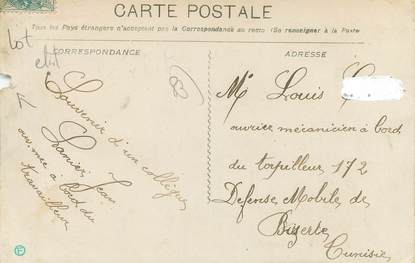 CARTE POSTALE
Tous les Pays étrangers n'acceptent pas la Correspondance au recto (Se renseigner à la Poste
CORRESPONDANCE
ADRESSE
Lot
Souvenir d'un collègue
Jean
ouv. mec à bord du
travailleur
Mr Louis
ouvrier mécanicien à bord
du torpilleur 172
Defense Mobile de
Bizerte
Tunisie